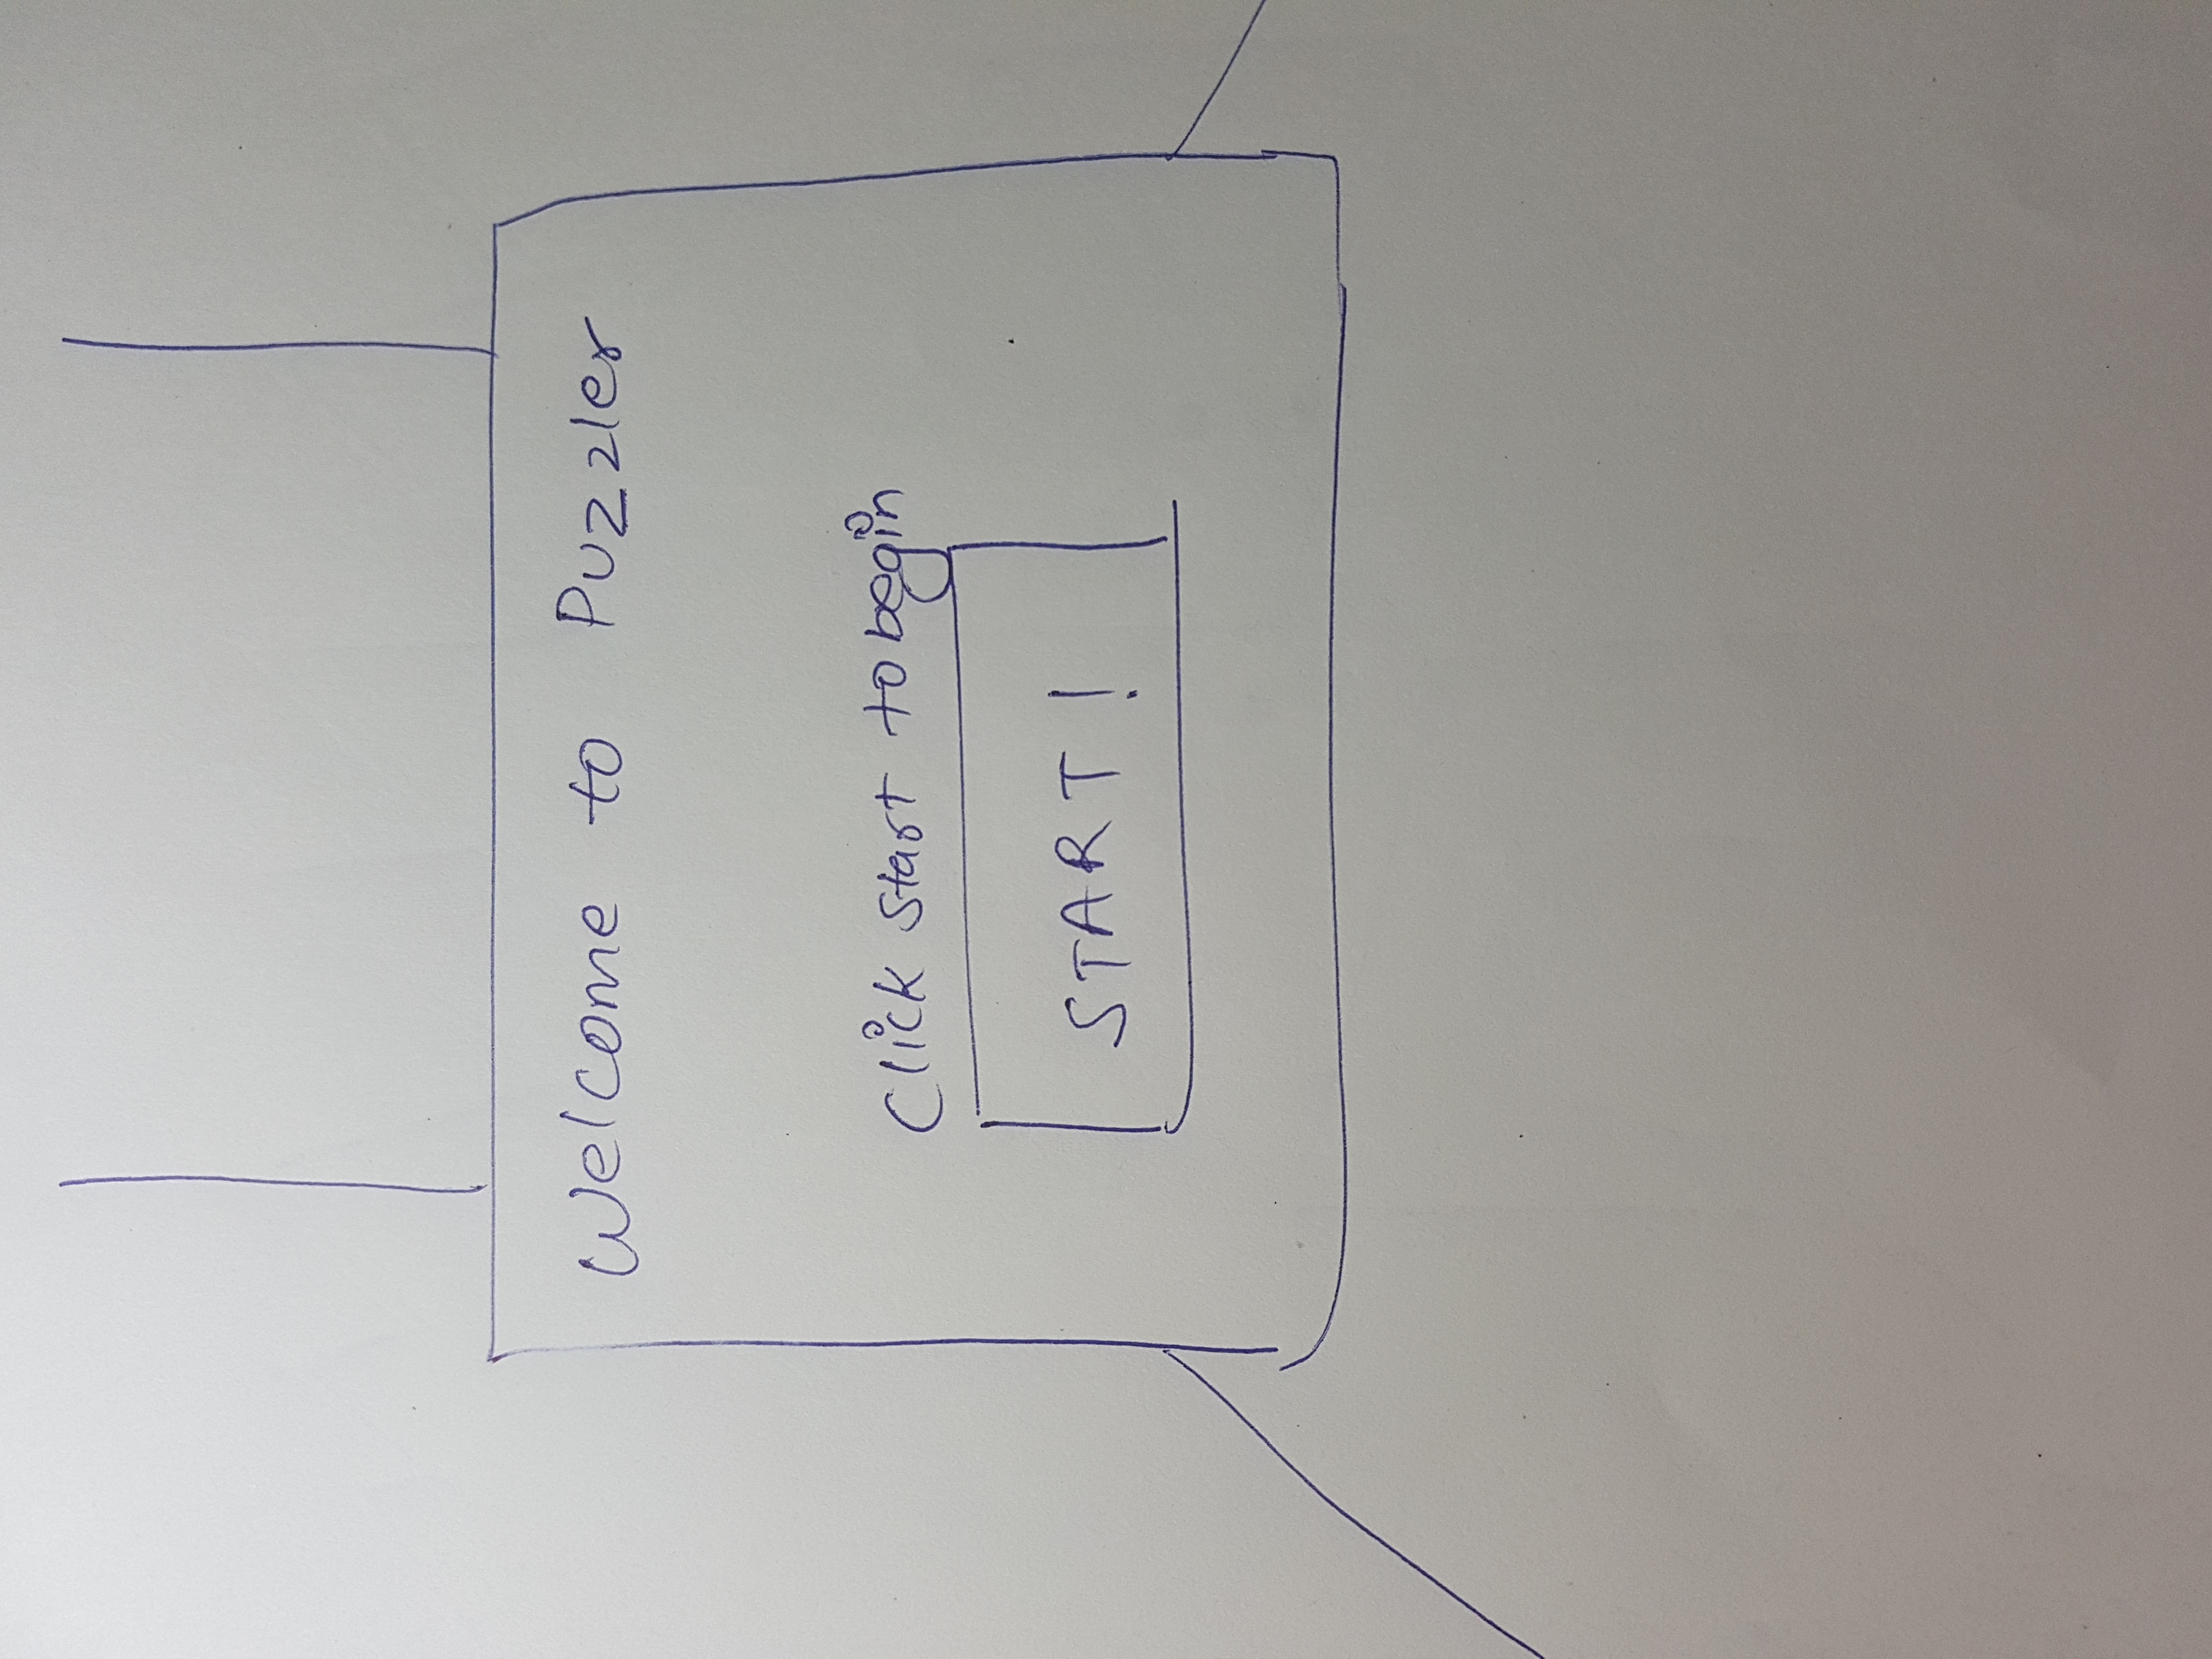 Welcome to Puzzler
Click Start to begin
START!